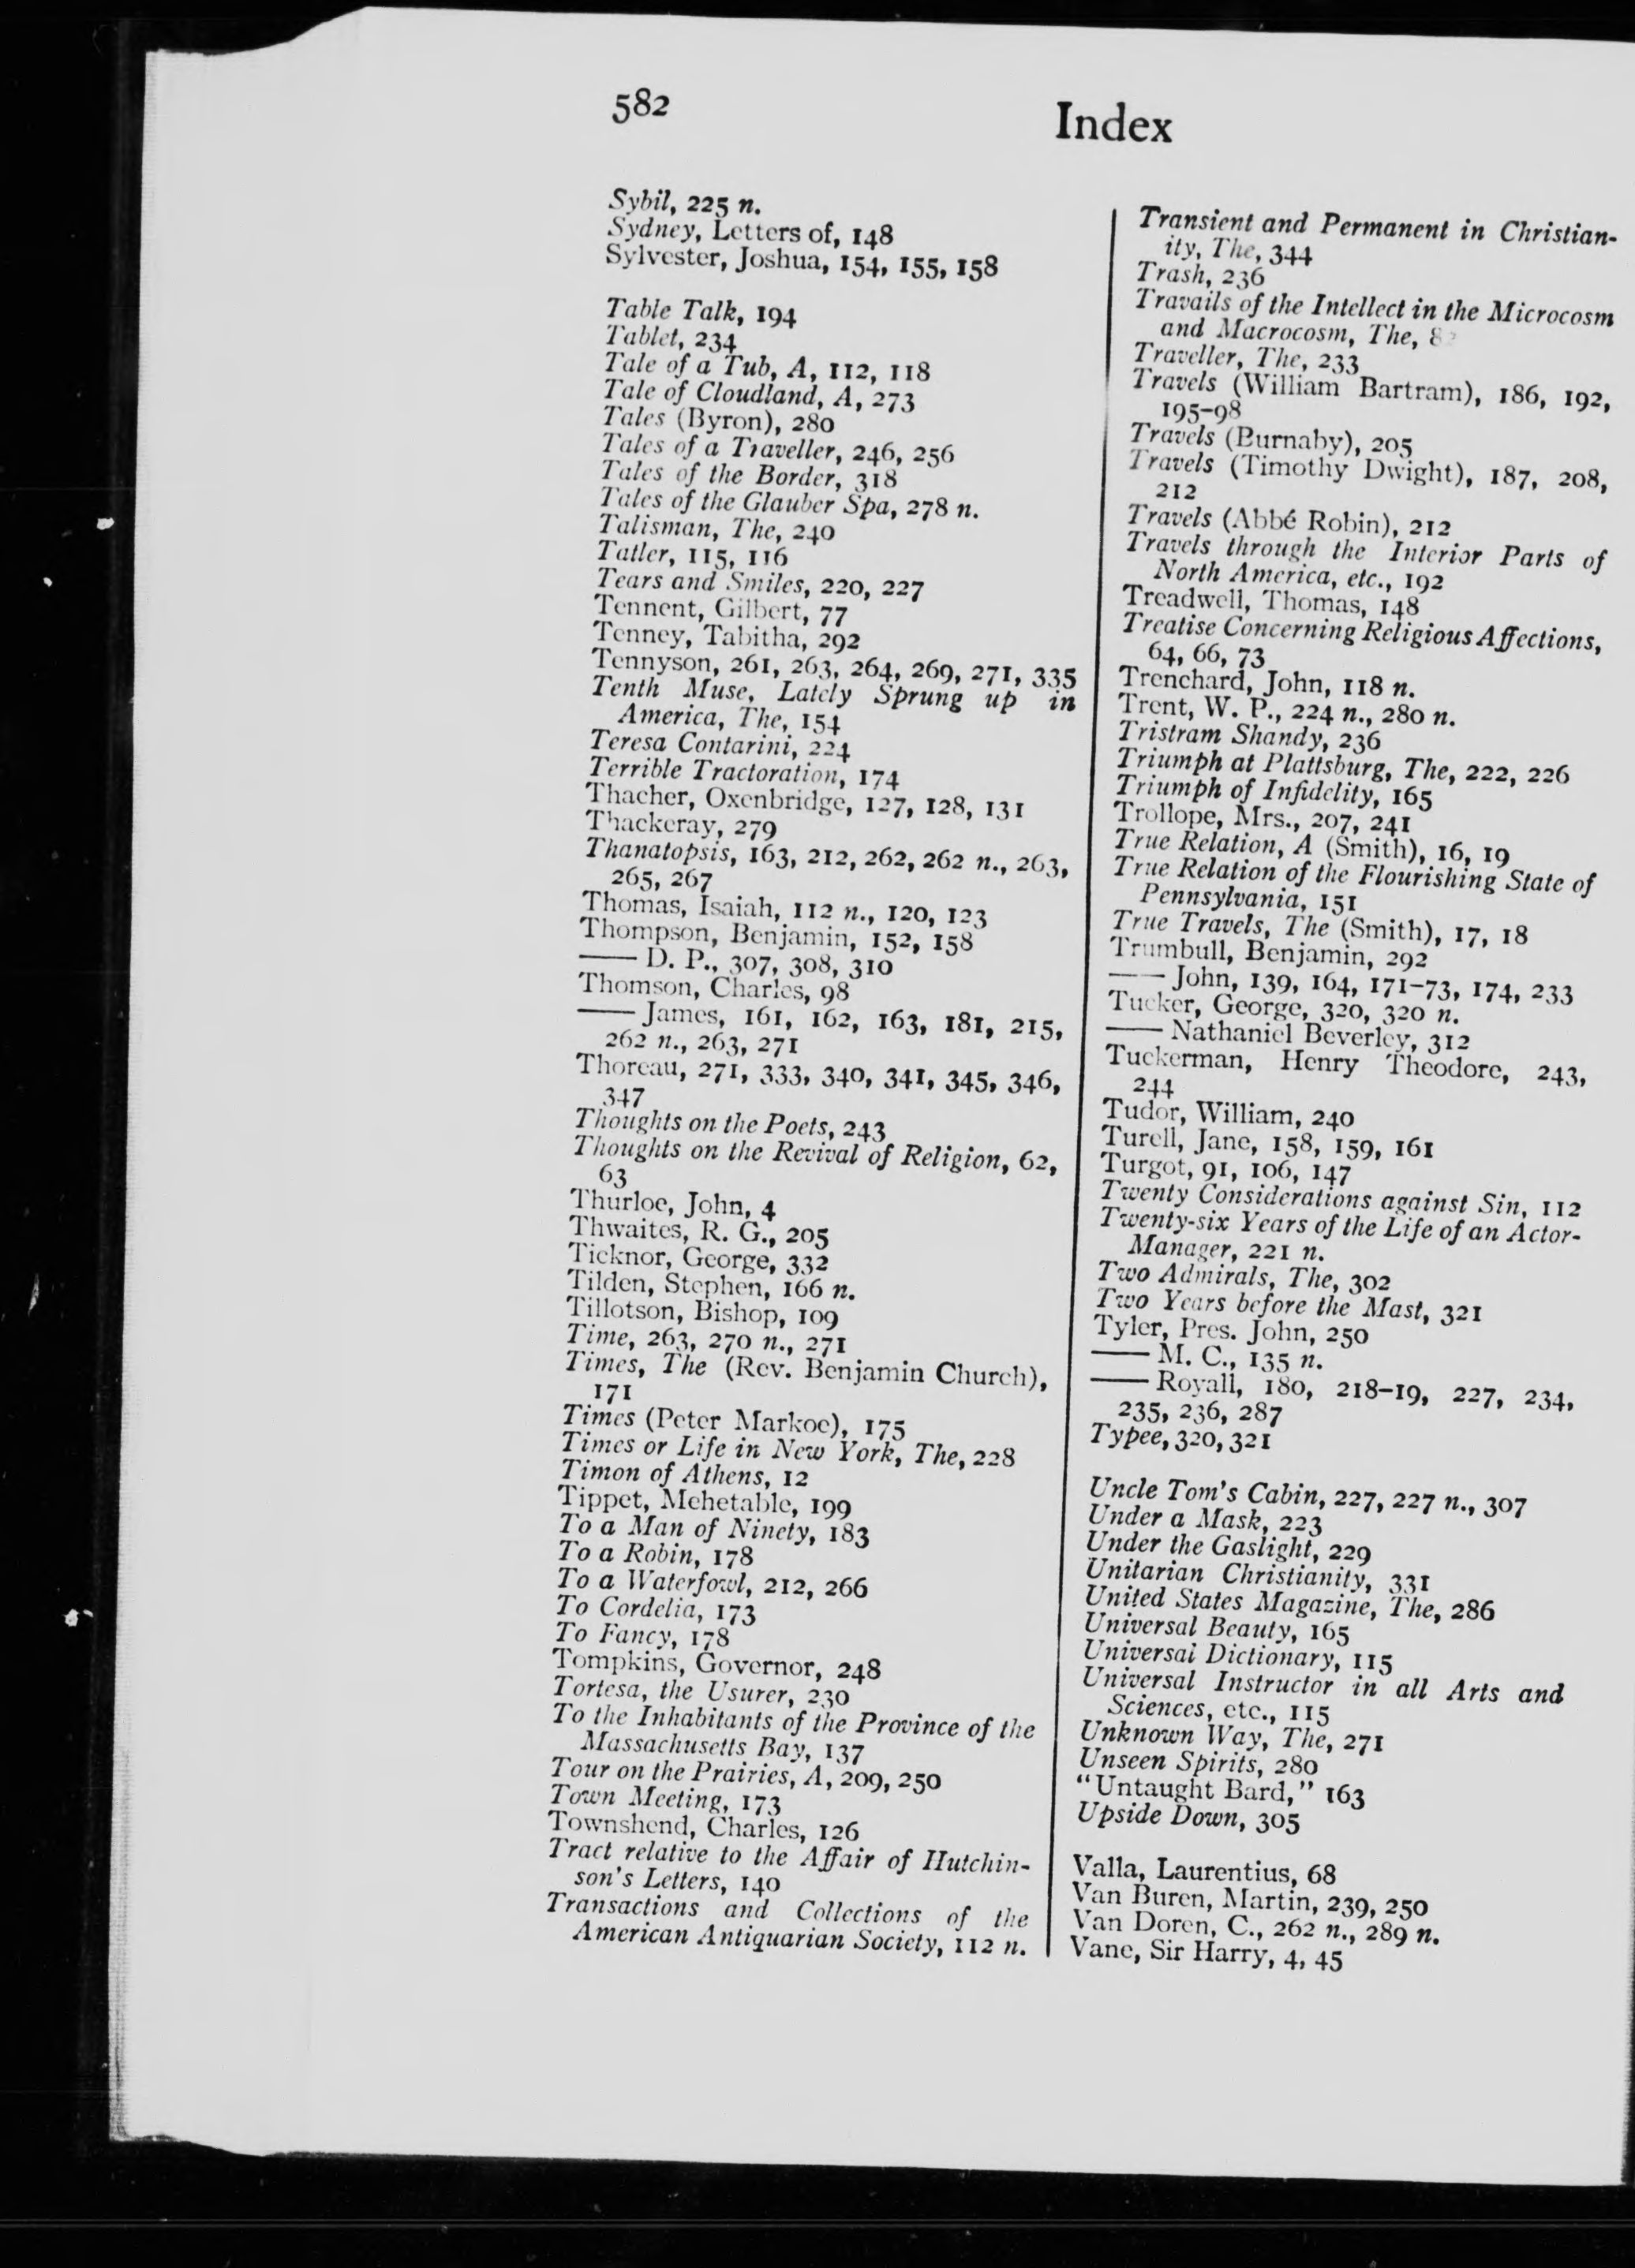 582
Index
Sybil, 225 n.
Sydney, Letters of, 148
Sylvester, Joshua, 154, 155, 158
Table Talk, 194
Tablet, 234
Tale of a Tub, A, 112, 118
Tale of Cloudland, A, 273
Tales (Byron), 280
Tales of a Traveller, 246, 256
Tales of the Border, 318
Tales of the Glauber Spa, 278 n.
Talisman, The, 240
Tatler, 115, 116
Tears and Smiles, 220, 227
Tennent, Gilbert, 77
Tenney, Tabitha, 292
Tennyson, 261, 263, 264, 269, 271, 335
Tenth Muse, Lately Sprung up in
America, The, 154
Teresa Contarini, 224
Terrible Tractoration, 174
Thacher, Oxenbridge, 127, 128, 131
Thackeray, 279
Thanatopsis, 163, 212, 262, 262 n., 263,
265, 267
Thomas, Isaiah, 112 n., 120, 123
Thompson, Benjamin, 152, 158
—— D. P., 307, 308, 310
Thomson, Charles, 98
—— James, 161, 162, 163, 181, 215,
262 n., 263, 271
Thoreau, 271, 333, 340, 341, 345, 346,
347
Thoughts on the Poets, 243
Thoughts on the Revival of Religion, 62,
63
Thurloe, John, 4
Thwaites, R. G., 205
Ticknor, George, 332
Tilden, Stephen, 166 n.
Tillotson, Bishop, 109
Time, 263, 270 n., 271
Times, The (Rev. Benjamin Church),
171
Times (Peter Markoe), 175
Times or Life in New York, The, 228
Timon of Athens, 12
Tippet, Mehetable, 199
To a Man of Ninety, 183
To a Robin, 178
To a Waterfowl, 212, 266
To Cordelia, 173
To Fancy, 178
Tompkins, Governor, 248
Tortesa, the Usurer, 230
To the Inhabitants of the Province of the
Massachusetts Bay, 137
Tour on the Prairies, A, 209, 250
Town Meeting, 173
Townshend, Charles, 126
Tract relative to the Affair of Hutchin-
son's Letters, 140
Transactions and Collections of the
American Antiquarian Society, 112 n.
Transient and Permanent in Christian-
ity, The, 344
Trash, 236
Travails of the Intellect in the Microcosm
and Macrocosm, The,
Traveller, The, 233
Travels (William Bartram), 186, 192,
195-98
Travels (Burnaby), 205
Travels (Timothy Dwight), 187, 208,
212
Travels (Abbé Robin), 212
Travels through the Interior Parts of
North America, etc., 192
Treadwell, Thomas, 148
Treatise Concerning Religious Affections,
64, 66, 73
Trenchard, John, 118 n.
Trent, W. P., 224 n., 280 n.
Tristram Shandy, 236
Triumph at Plattsburg, The, 222, 226
Triumph of Infidelity, 165
Trollope, Mrs., 207, 241
True Relation, A (Smith), 16, 19
True Relation of the Flourishing State of
Pennsylvania, 151
True Travels, The (Smith), 17, 18
Trumbull, Benjamin, 292
—— John, 139, 164, 171-73, 174, 233
Tucker, George, 320, 320 n.
—— Nathaniel Beverley, 312
Tuckerman, Henry Theodore, 243,
244
Tudor, William, 240
Turell, Jane, 158, 159, 161
Turgot, 91, 106, 147
Twenty Considerations against Sin, 112
Twenty-six Years of the Life of an Actor-
Manager, 221 n.
Two Admirals, The, 302
Two Years before the Mast, 321
Tyler, Pres. John, 250
—— M. C., 135 n.
—— Royall, 180, 218-19, 227, 234,
235, 236, 287
Typee, 320, 321
Uncle Tom's Cabin, 227, 227 n., 307
Under a Mask, 223
Under the Gaslight, 229
Unitarian Christianity, 331
United States Magazine, The, 286
Universal Beauty, 165
Universal Dictionary, 115
Universal Instructor in all Arts and
Sciences, etc., 115
Unknown Way, The, 271
Unseen Spirits, 280
"Untaught Bard," 163
Upside Down, 305
Valla, Laurentius, 68
Van Buren, Martin, 239, 250
Van Doren, C., 262 n., 289 n.
Vane, Sir Harry, 4, 45